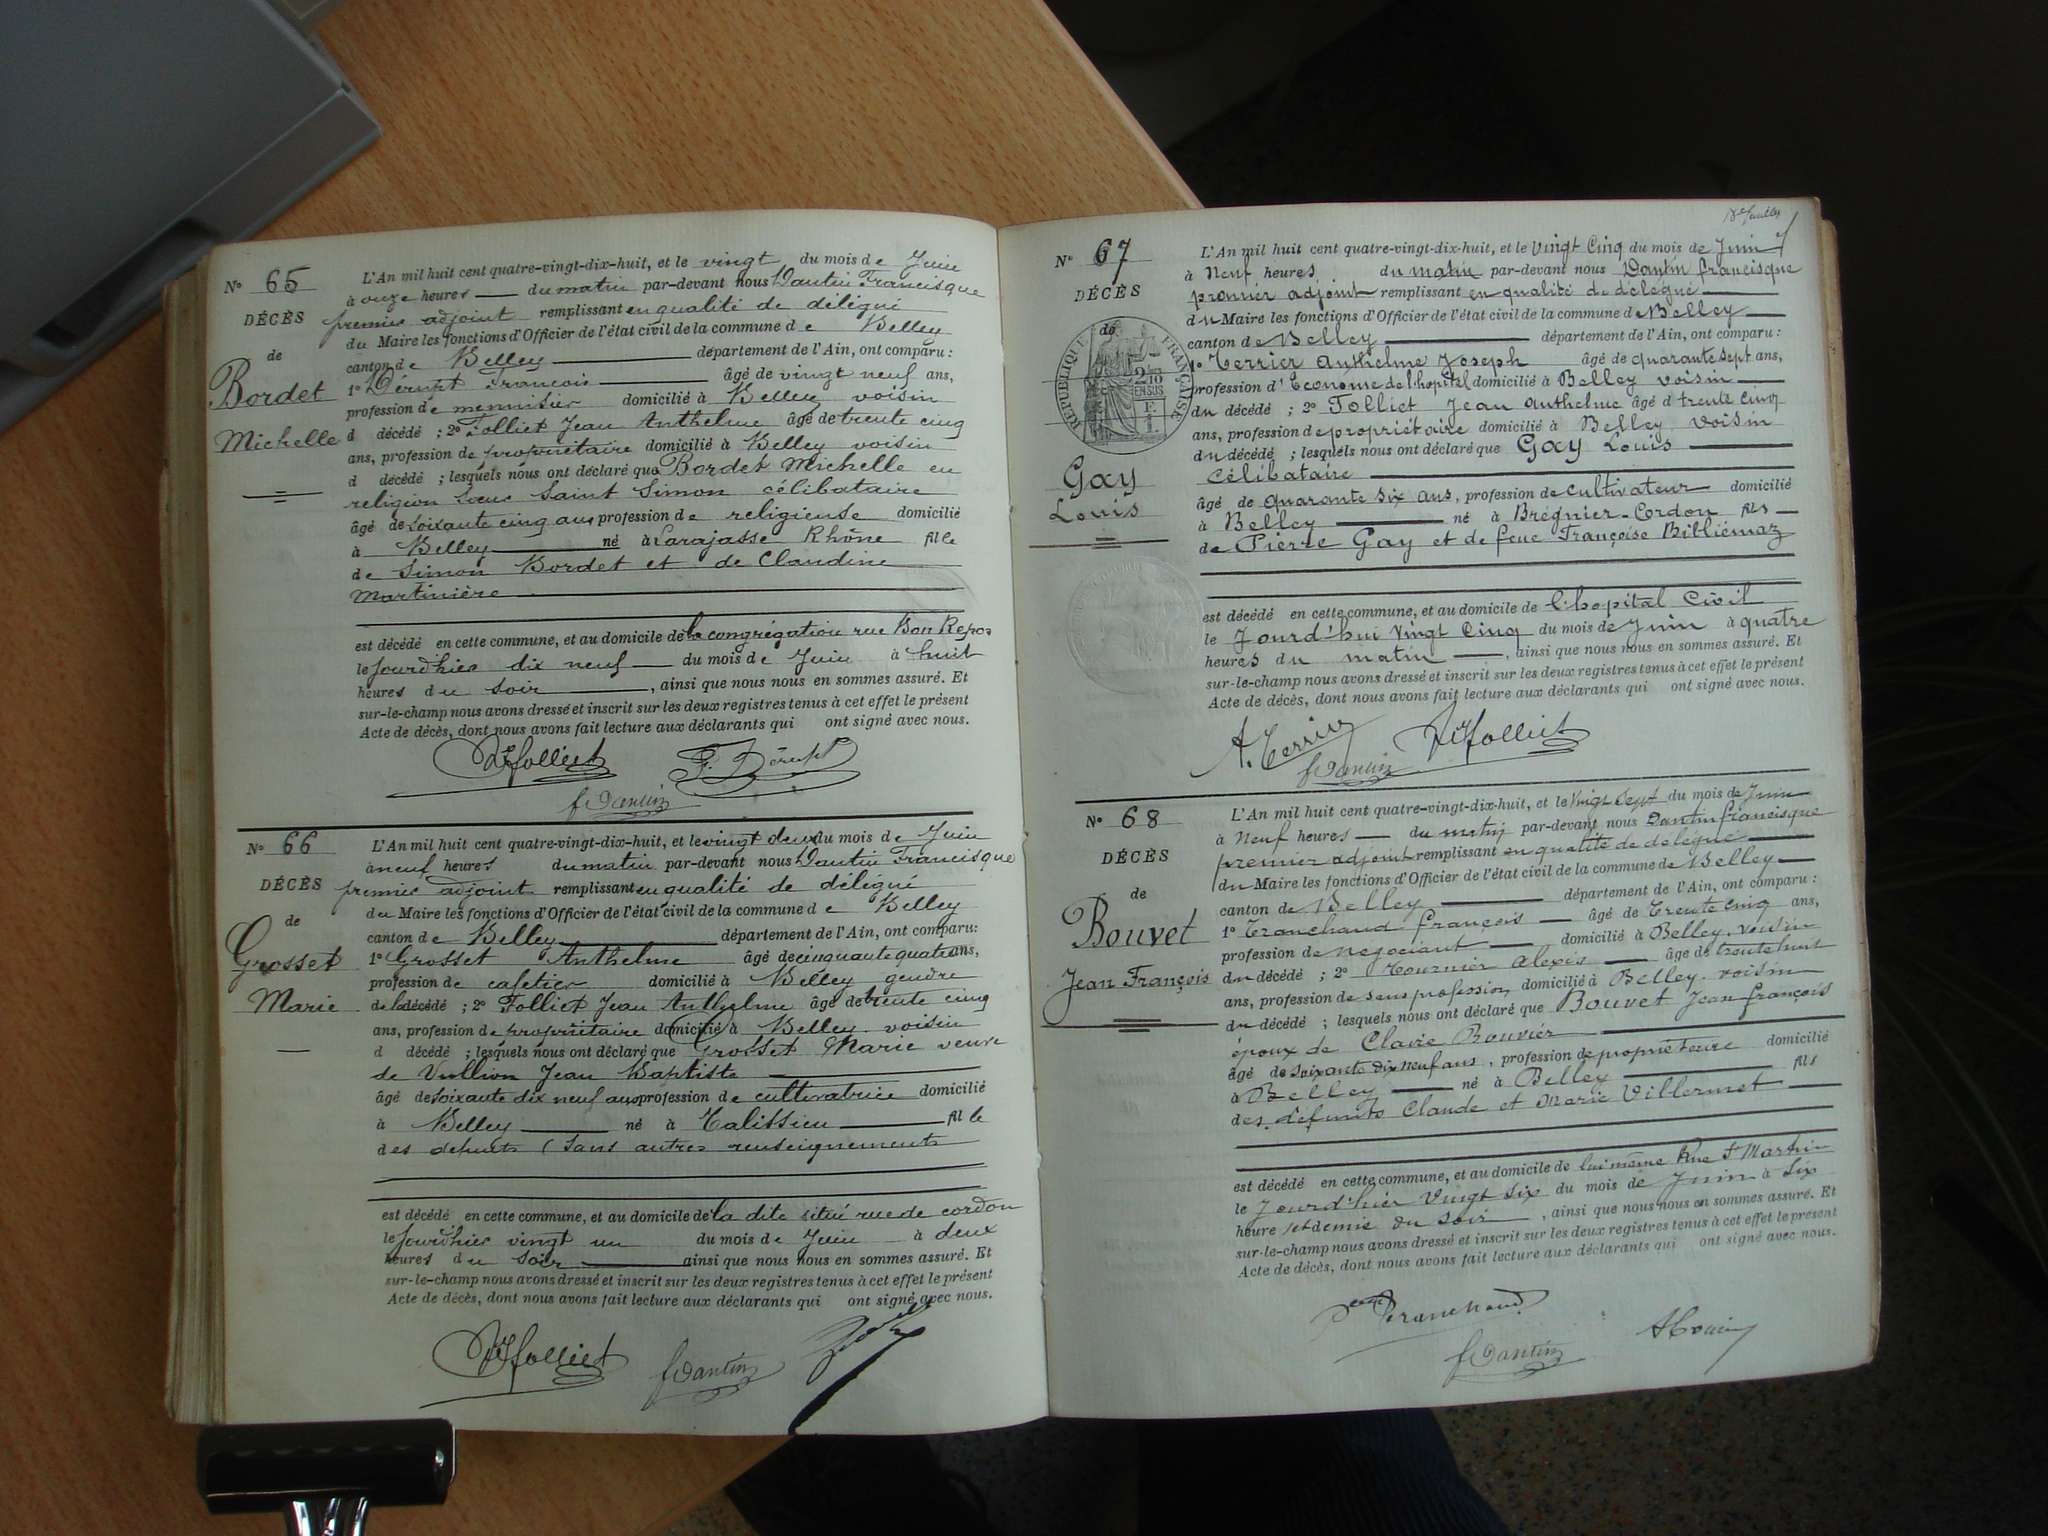 N° 65
DÉCÈS
de
Bordet
Michelle
L'An mil huit cent quatre-vingt-dix-huit, et le vingt du mois de Juin
à onze heures du matin par-devant nous Dantin Francisque
premier adjoint remplissant en qualité de délégué
du Maire les fonctions d'Officier de l'état civil de la commune de Belley
canton de Belley département de l'Ain, ont comparu :
1° François âgé de vingt neuf ans,
profession de menuisier domicilié à Belley voisin
d décédé ; 2° Folliet Jean Anthelme âgé de trente cinq
ans, profession de propriétaire domicilié à Belley voisin
d décédé ; lesquels nous ont déclaré que Bordet Michelle en
religion Sœur Saint Simon célibataire
âgé de soixante cinq ans profession de religieuse domicilié
à Belley né à Larajasse Rhône fille
de Simon Bordet et de Claudine
Martinière
est décédé en cette commune, et au domicile de la congrégation rue Bon Repos
le jourd'hier dix neuf du mois de Juin à huit
heures du soir , ainsi que nous nous en sommes assuré. Et
sur-le-champ nous avons dressé et inscrit sur les deux registres tenus à cet effet le présent
Acte de décès, dont nous avons fait lecture aux déclarants qui ont signé avec nous.
Folliet
F Dantin
N° 66
DÉCÈS
de
Grosset
Marie
L'An mil huit cent quatre-vingt-dix-huit, et le vingt deux du mois de Juin
à neuf heures du matin par-devant nous Dantin Francisque
premier adjoint remplissant en qualité de délégué
du Maire les fonctions d'Officier de l'état civil de la commune de Belley
canton de Belley département de l'Ain, ont comparu :
1° Grosset Anthelme âgé de cinquante quatre ans,
profession de cafetier domicilié à Belley gendre
de la décédé ; 2° Folliet Jean Anthelme âgé de trente cinq
ans, profession de propriétaire domicilié à Belley voisin
d décédé ; lesquels nous ont déclaré que Grosset Marie veuve
de Vullion Jean Baptiste
âgé de soixante dix neuf ans profession de cultivatrice domicilié
à Belley né à Talissieu fille
des défunts (sans autres renseignements
est décédé en cette commune, et au domicile de la dite situé rue de cordon
le jourdhier vingt un du mois de Juin à deux
heures du soir ainsi que nous nous en sommes assuré. Et
sur-le-champ nous avons dressé et inscrit sur les deux registres tenus à cet effet le présent
Acte de décès, dont nous avons fait lecture aux déclarants qui ont signé avec nous.
Folliet F Dantin
N° 67
DÉCÈS
de
RÉPUBLIQUE FRANÇAISE
Gay
Louis
L'An mil huit cent quatre-vingt-dix-huit, et le vingt cinq du mois de Juin
à Neuf heures du matin par-devant nous Dantin francisque
premier adjoint remplissant en qualité de délégué
du Maire les fonctions d'Officier de l'état civil de la commune de Belley
canton de Belley département de l'Ain, ont comparu :
1° Terrier Anthelme Joseph âgé de quarante sept ans,
profession d'Econome de l'hopital domicilié à Belley voisin
du décédé ; 2° Folliet Jean Anthelme âgé d trente cinq
ans, profession de propriétaire domicilié à Belley voisin
du décédé ; lesquels nous ont déclaré que Gay Louis
célibataire
âgé de quarante six ans, profession de cultivateur domicilié
à Belley né à Brégnier-Cordon fils
de Pierre Gay et de feue Françoise Bibliémaz
est décédé en cette commune, et au domicile de l'hopital Civil
le Jourd'hui vingt cinq du mois de Juin à quatre
heures du matin , ainsi que nous nous en sommes assuré. Et
sur-le-champ nous avons dressé et inscrit sur les deux registres tenus à cet effet le présent
Acte de décès, dont nous avons fait lecture aux déclarants qui ont signé avec nous.
A. Terrier Folliet
F Dantin
N° 68
DÉCÈS
de
Bouvet
Jean François
L'An mil huit cent quatre-vingt-dix-huit, et le vingt sept du mois de Juin
à Neuf heures du matin par-devant nous Dantin francisque
premier adjoint remplissant en qualité de délégué
du Maire les fonctions d'Officier de l'état civil de la commune de Belley
canton de Belley département de l'Ain, ont comparu :
1° Tranchand françois âgé de trente cinq ans,
profession de négociant domicilié à Belley voisin
du décédé ; 2° Tournier Alexis âgé de trente huit
ans, profession de sans profession domicilié à Belley voisin
du décédé ; lesquels nous ont déclaré que Bouvet Jean françois
époux de Clavie Bouvier
âgé de soixante dix neuf ans, profession de propriétaire domicilié
à Belley né à Belley fils
des défunts Claude et Marie Villermet
est décédé en cette commune, et au domicile de lui même Rue St Martin
le Jourd'hier vingt six du mois de Juin à six
heure et demie du soir , ainsi que nous nous en sommes assuré. Et
sur-le-champ nous avons dressé et inscrit sur les deux registres tenus à cet effet le présent
Acte de décès, dont nous avons fait lecture aux déclarants qui ont signé avec nous.
Tranchand
F Dantin